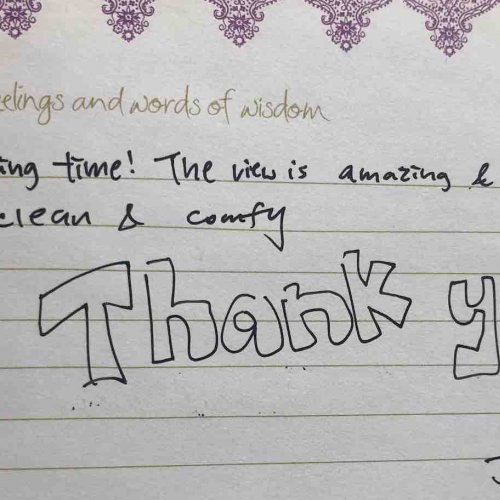 eelings and words of wisdom
ing time! The view is amazing &
clean & comfy
Thank y